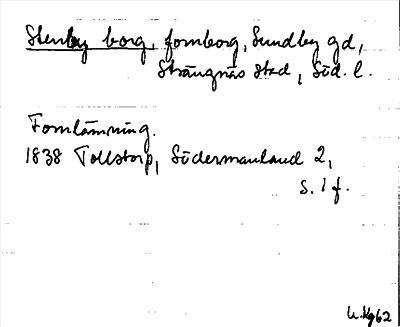 Stenby borg, fornborg, Sundby gd,
Strängnäs stad, Söd. l.
Fornlämning.
1838 Tollstorp, Södermanland 2,
s. 1 f.